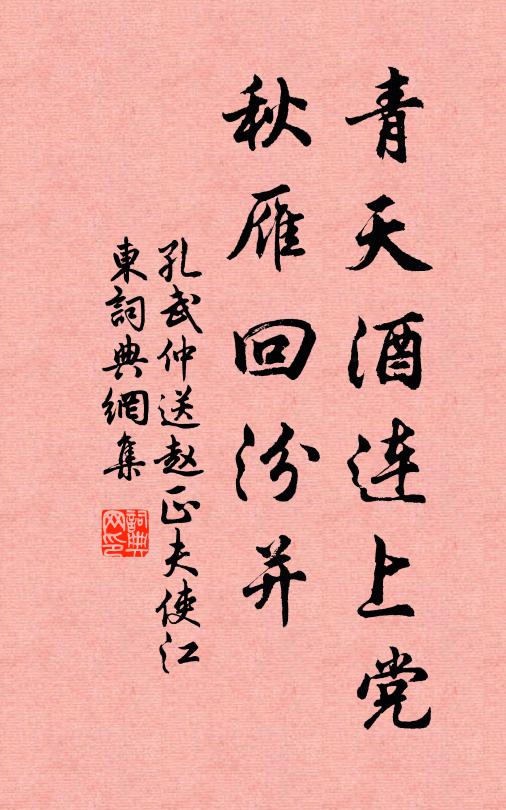 青天酒连上党
秋雁回汾并
孔武仲送赵正夫使江
東詞典網集
詞典
网印